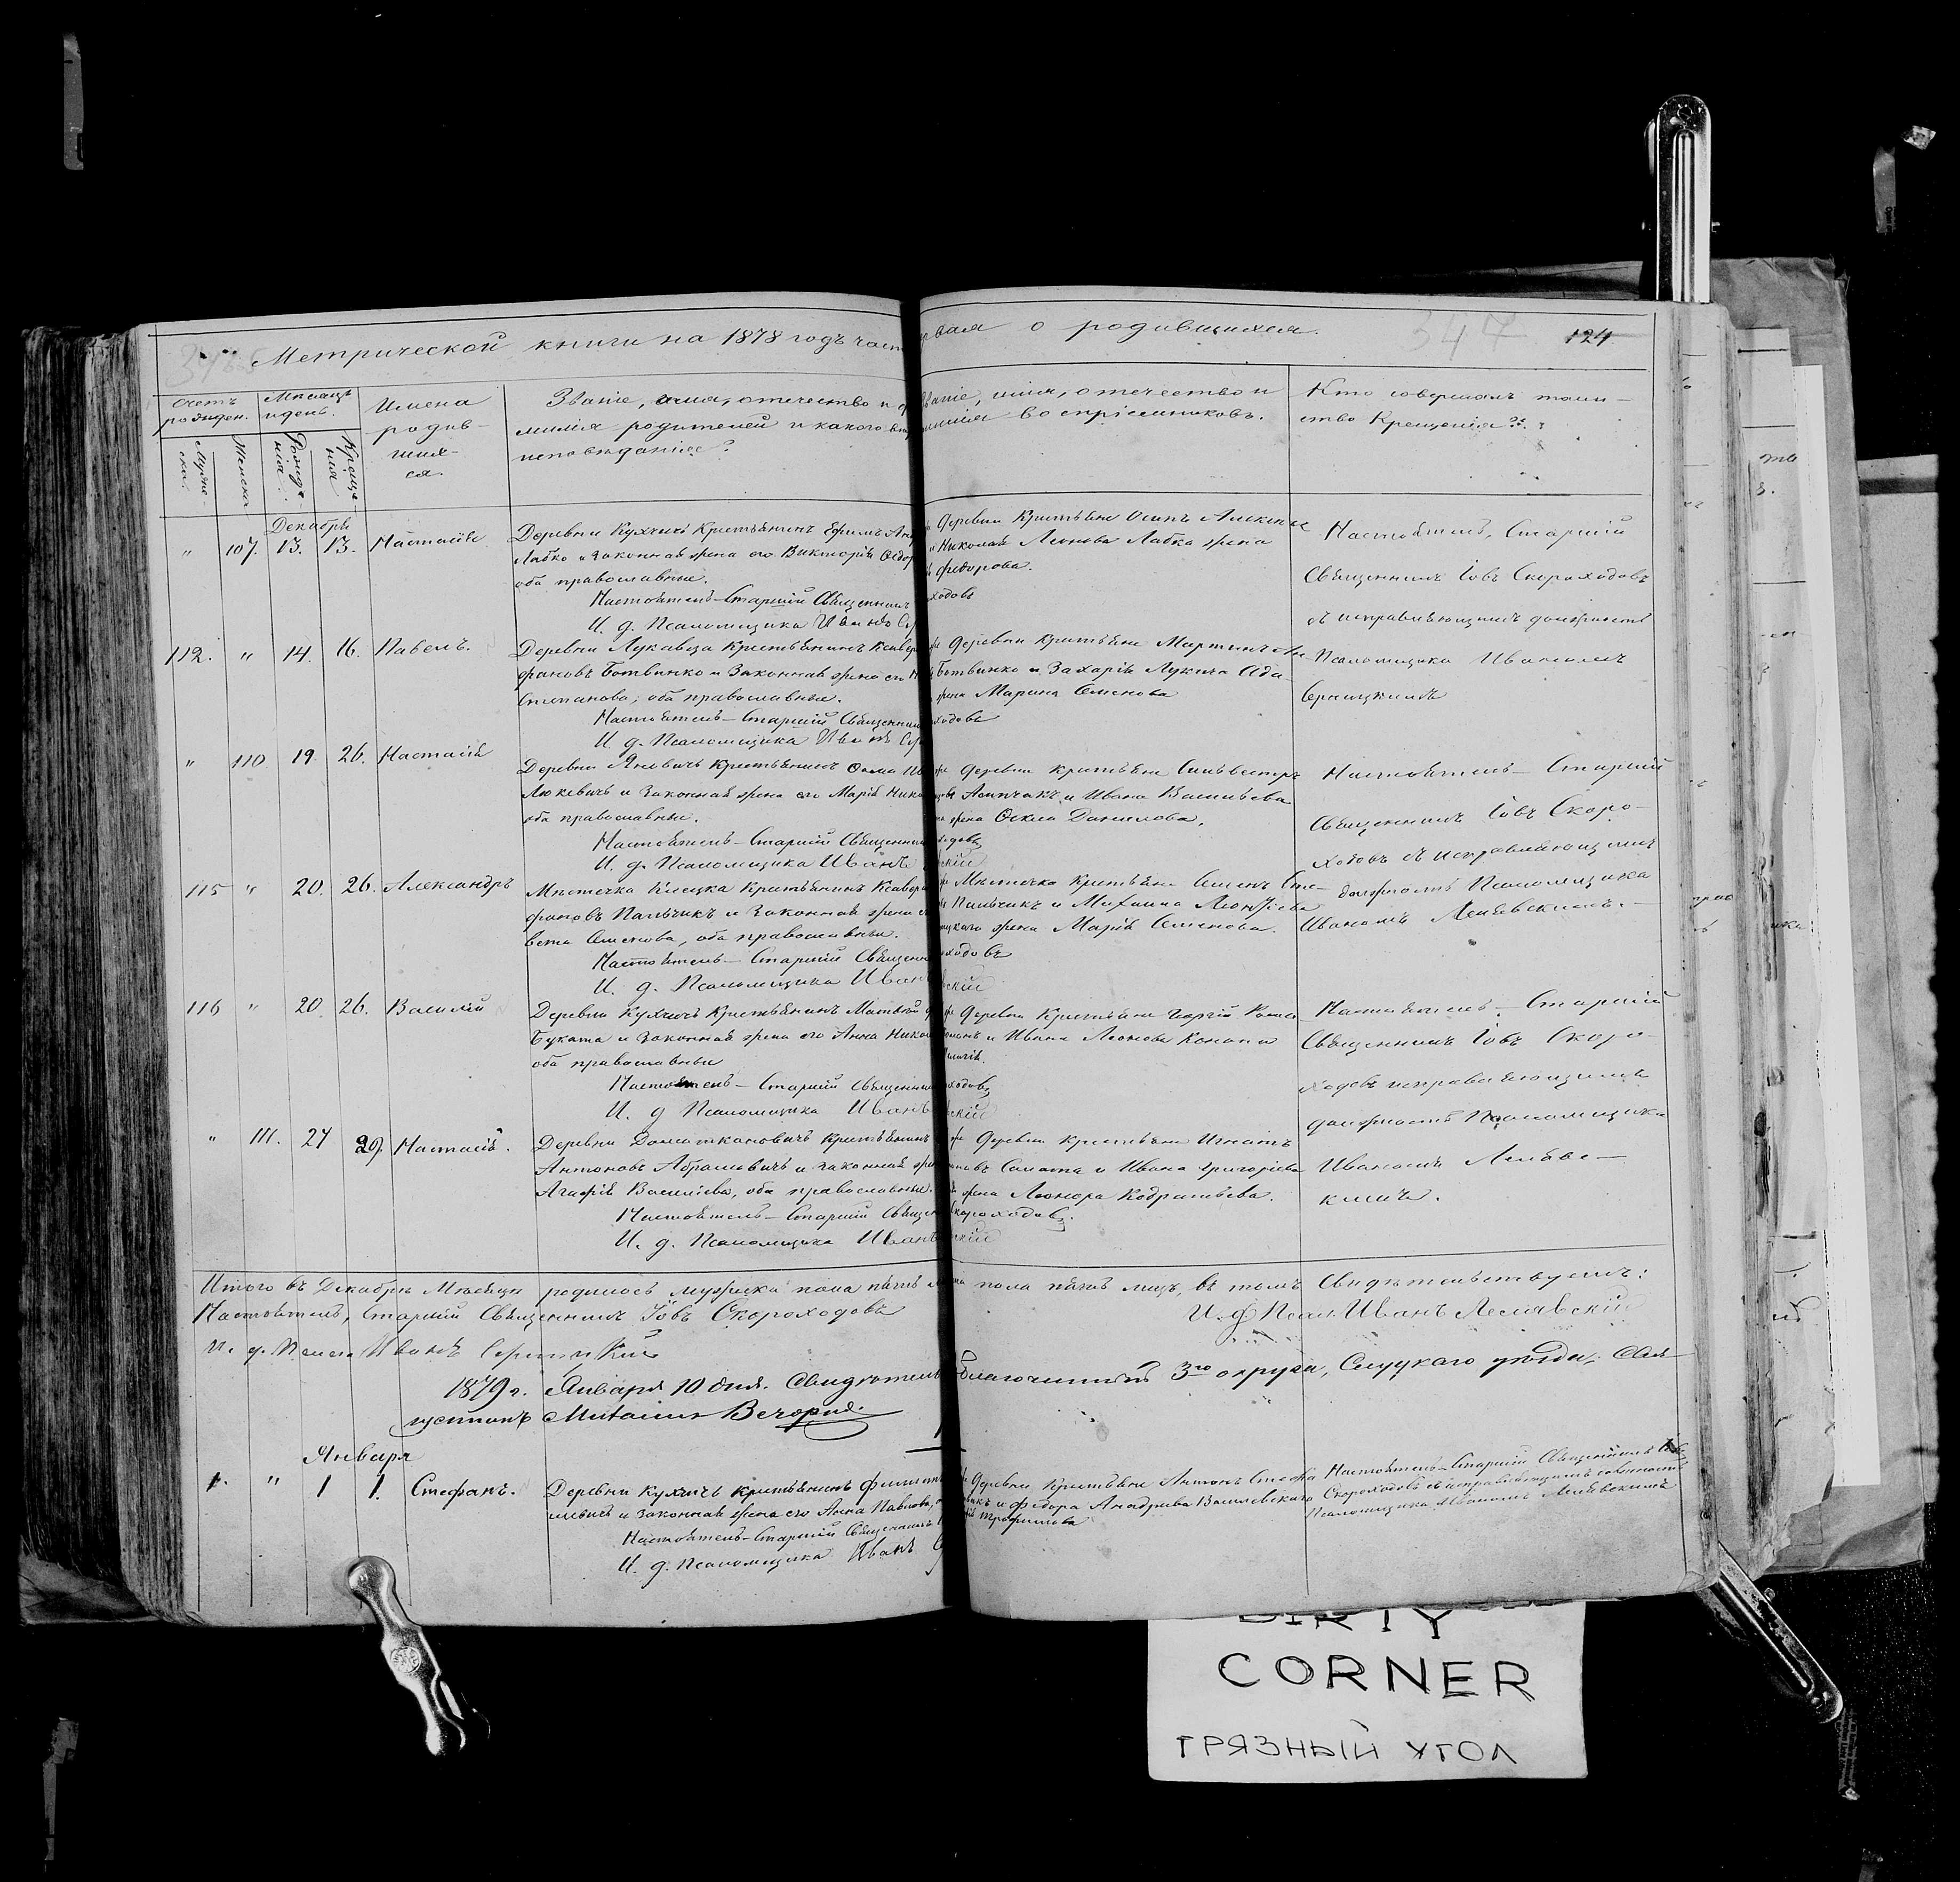 Метрической книги на 1878 годъ част
рвая о родившихся.
347
124
Счетъ родивш.
Мѣсяцъ и день.
Мужеска.
Женска
Рожде-
нія.
Креще-
нія
Имена
родив-
ших-
ся.
Званіе, имя, отечество и ф
милія родителей и какого вѣр
исповѣданія?
Званіе, имя, отечество и
милія воспріемниковъ.
Кто совершалъ таин-
ство Крещенія??
Декабрь
" 107. 13. 13. Настасія
Деревни Кухчичъ Крестьянинъ Ефимъ Ан
Лабко и законная жена его Викторія Ѳедор
оба православные.
Настоятель-Старшій Священникъ
И. д. Псаломщика Иванъ Се
Деревни Крестьяне Осипъ Алексѣ
и Николая Леонова Лабка жена
Федорова.
ходовъ
Настоятель, Старшій
Священникъ Іовъ Скороходовъ
съ исправляющимъ должность
Псаломщика Иваномъ
112. " 14. 16. Павелъ.
Деревни Лукавца Крестьянинъ Ксавер
фановъ Ботвинко и Законная жена его
Степанова, оба православные.
Настоятель-Старшій Священник
И. д. Псаломщика Иванъ Се
деревни Крестьяне Мартинъ
Ботвинко и Захарія Лукича Ада
жена Марина Семенова
ходовъ
" 110 19. 26. Настасія
Деревни Яновичъ Крестьянинъ Ѳома Ив
Люкевичъ и Законная жена его Марія Нико
оба православные.
Настоятель-Старшій Священник
И. д. Псаломщика Иванъ
деревни крестьяне Сильвестръ
и Ивана Васильева
жена Ѳекла Данилова.
ходовъ
скій
Настоятель - Старшій
Священникъ Іовъ Скоро-
ходовъ съ исправляющимъ
должность Псаломщика
Иваномъ
115 " 20. 26. Александръ
Мѣстечка Клецка Крестьянинъ Ксавер
фановъ Пальчикъ и Законная жена
вета Семенова, оба православные.
Настоятель-Старшій Священн
И. д. Псаломщика Иван
Мѣстечка Крестьяне Семенъ Сте-
Пальчикъ и Михаила Леонтіева
цкаго жена Марія Семенова.
ходовъ
скій
116 " 20 26. Василій
Деревни Кухчичъ Крестьянинъ Матвѣй
Буката и Законная жена его Анна Никол
оба православные
Настоятель - Старшій Священник
И. д Псаломщика Иванъ
деревни Крестьяне Георгій Рома
и Ивана Леонова Конона
ходовъ
скій
Настоятель - Старшій
Священникъ Іовъ Скоро-
ходовъ исправляющимъ
должность Псаломщика
Иваномъ
" 111. 24 29. Настасія.
Деревни Доматкановичъ Крестьянинъ
Антоновъ Абрамовичъ и законная жен
Агафія Василіева, оба православные.
Настоятель-Старшій Священ
И. д. Псаломщика Иванъ
деревни крестьяне Игнатъ
Салата и Ивана Григоріева
жена Леонора Кодратьева.
Скороходовъ.
скій
Итого въ Декабрѣ Мѣсяцѣ родилось мужеска пола пять
пола пять лицъ, въ томъ Свидѣтельствуемъ:
Настоятель, Старшій Священникъ Іовъ Скороходовъ
И. д. Псал. Иванъ
И. д. Псал. Иванъ
1879 г. Января 10 дня. Свидѣтель
Благочинный 3го округа, Слуцкаго уѣзда, Свя-
щенникъ Михаилъ Вечорко.
Января
1. " 1 1. Стефанъ.
Деревни Кухчичъ крестьянинъ Филип
и законная жена его Анна Павлова,
Настоятель-Старшій Священникъ
И. д. Псаломщика Иванъ
Деревни Крестьяне Антонъ Стефа
и Федора Андреева Василевскаго
Трофимова
Настоятель-Старшій Священникъ Іовъ
Скороходовъ съ исправляющимъ должность
Псаломщика Иваномъ
DIRTY
CORNER
ГРЯЗНЫЙ УГОЛ